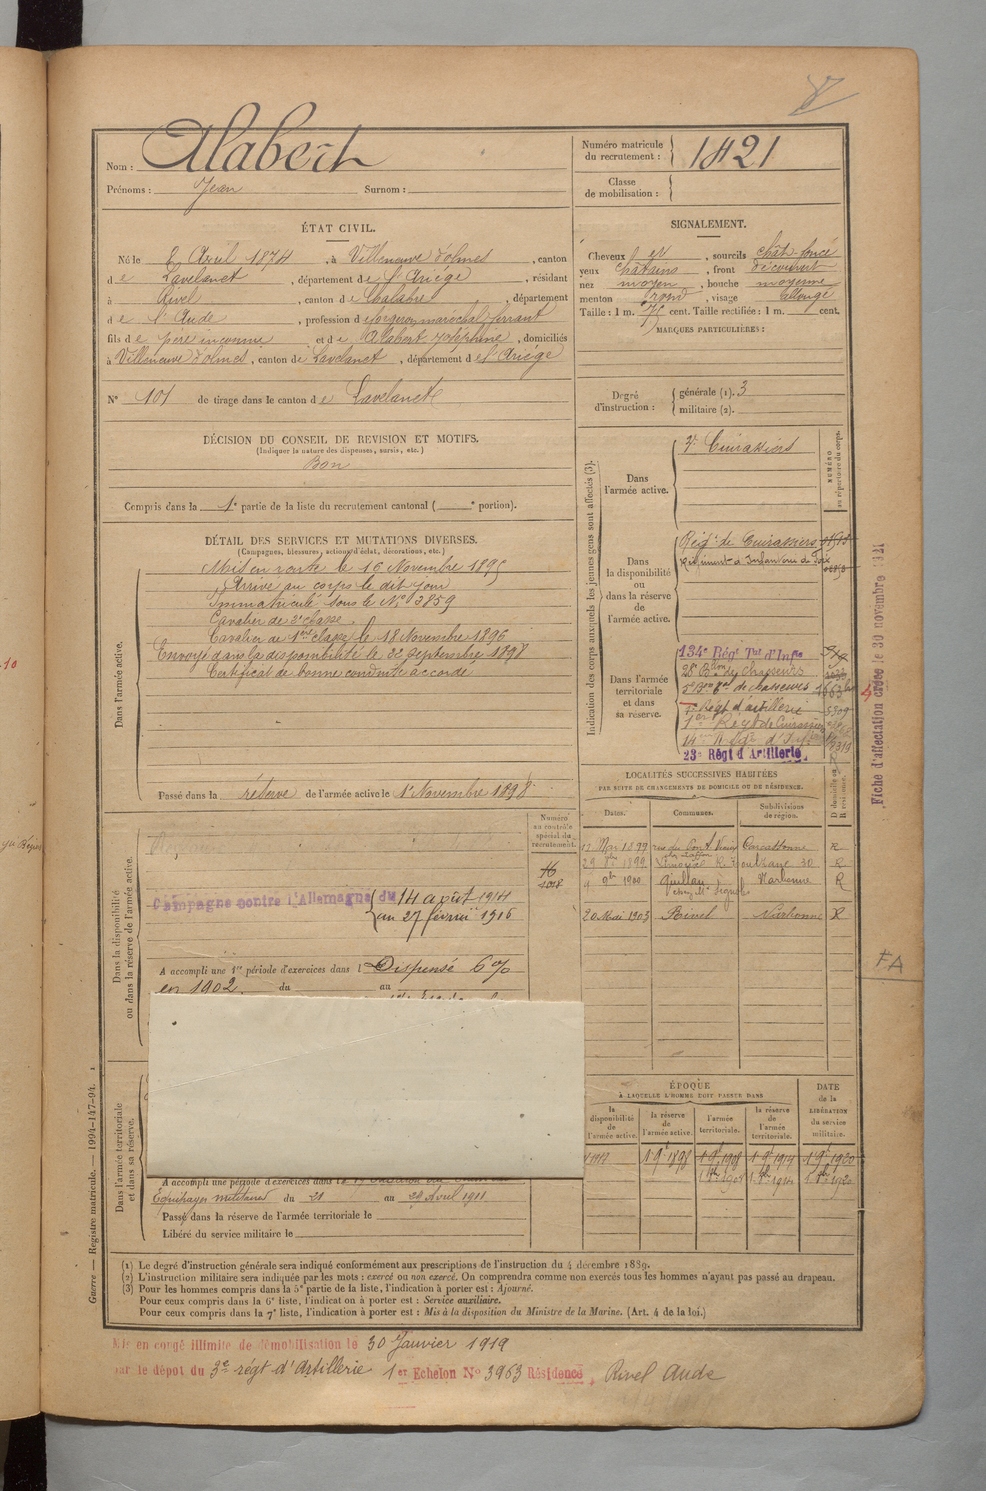 Nom : Alabert
Prénoms : Jean Surnom :
Numéro matricule du recrutement : 1821
Classe de mobilisation :
ÉTAT CIVIL.
Né le 2 Avril 1874, à Villeneuve d'olmes, canton
de Lavelanet, département de l'Ariège, résidant
à Rivel, canton de Chalabre, département
de l'Aude, profession de forgeron maréchal ferrant
fils de père inconnu et de Alabert Joséphine, domiciliés
à Villeneuve d'olmes, canton de Lavelanet, département de l'Ariège
N° 101 de tirage dans le canton de Lavelanet
SIGNALEMENT.
Cheveux et, sourcils chât. foncé
yeux châtains, front découvert
nez moyen, bouche moyenne
menton rond, visage allongé
Taille : 1 m. 75 cent. Taille rectifiée : 1 m. cent.
MARQUES PARTICULIÈRES :
Degré d'instruction : générale (1). 3
militaire (2).
DÉCISION DU CONSEIL DE REVISION ET MOTIFS.
(Indiquer la nature des dispenses, sursis, etc.)
Bon
Compris dans la 1e partie de la liste du recrutement cantonal ( e portion).
DÉTAIL DES SERVICES ET MUTATIONS DIVERSES.
(Campagnes, blessures, actions d'éclat, décorations, etc.)
Dans l'armée active.
Mis en route le 16 Novembre 1895
Arrivé au corps le dit jour
Immatriculé sous le N° 3859
Cavalier de 2e classe.
Cavalier de 1ère classe le 18 Novembre 1896
Envoyé dans la disponibilité le 22 septembre 1898
Certificat de bonne conduite accordé
Passé dans la réserve de l'armée active le 1er Novembre 1898
Indication des corps auxquels les jeunes gens sont affectés (3).
NUMÉRO au répertoire du corps.
Dans l'armée active.
Cuirassiers
Dans la disponibilité ou dans la réserve de l'armée active.
Régt de Cuirassiers
Régiment d'Infanterie de Foix
Dans l'armée territoriale et dans sa réserve.
134e Régt Tal d'Infie
de chasseurs
de chasseurs
Régt d'artillerie
1er Régt de Cuirassiers
23e Régt d'Artillerie
Fiche d'affectation créée le 30 novembre 1921
LOCALITÉS SUCCESSIVES HABITÉES
PAR SUITE DE CHANGEMENTS DE DOMICILE OU DE RÉSIDENCE.
Dates. Communes. Subdivisions de région. D domicile ou R résidence.
13 Mai 1899 rue du Pont Vieux Carcassonne R
9 9bre 1900 Quillan Narbonne R
20 Mai 1903 Rivel Narbonne R
Numéro au contrôle spécial du recrutement.
Dans la disponibilité ou dans la réserve de l'armée active.
Campagne contre l'Allemagne du 14 août 1914
au 27 février 1916
A accompli une 1re période d'exercices dans l Dispensé 6%
en 1902. du au
FA
Dans l'armée territoriale et dans sa réserve.
A accompli une période d'exercices dans le
Equipages militaires du 21 au 29 Avril 1911
Passé dans la réserve de l'armée territoriale le
Libéré du service militaire le
ÉPOQUE
À LAQUELLE L'HOMME DOIT PASSER DANS
la disponibilité de l'armée active. la réserve de l'armée active. l'armée territoriale. la réserve de l'armée territoriale. DATE de la LIBÉRATION du service militaire.
1 9bre 1898 1 9bre 1908 1 9bre 1914 1 9bre 1920
(1) Le degré d'instruction générale sera indiqué conformément aux prescriptions de l'instruction du 4 décembre 1889.
(2) L'instruction militaire sera indiquée par les mots : exercé ou non exercé. On comprendra comme non exercés tous les hommes n'ayant pas passé au drapeau.
(3) Pour les hommes compris dans la 5e partie de la liste, l'indication à porter est : Ajourné.
Pour ceux compris dans la 6e liste, l'indication à porter est : Service auxiliaire.
Pour ceux compris dans la 7e liste, l'indication à porter est : Mis à la disposition du Ministre de la Marine. (Art. 4 de la loi.)
Guerre — Registre matricule. — 1994-147-94.
Mis en congé illimité de démobilisation le 30 Janvier 1919
par le dépot du 3e régt d'Artillerie 1er Echelon N° 3963 Résidence, Rivel Aude